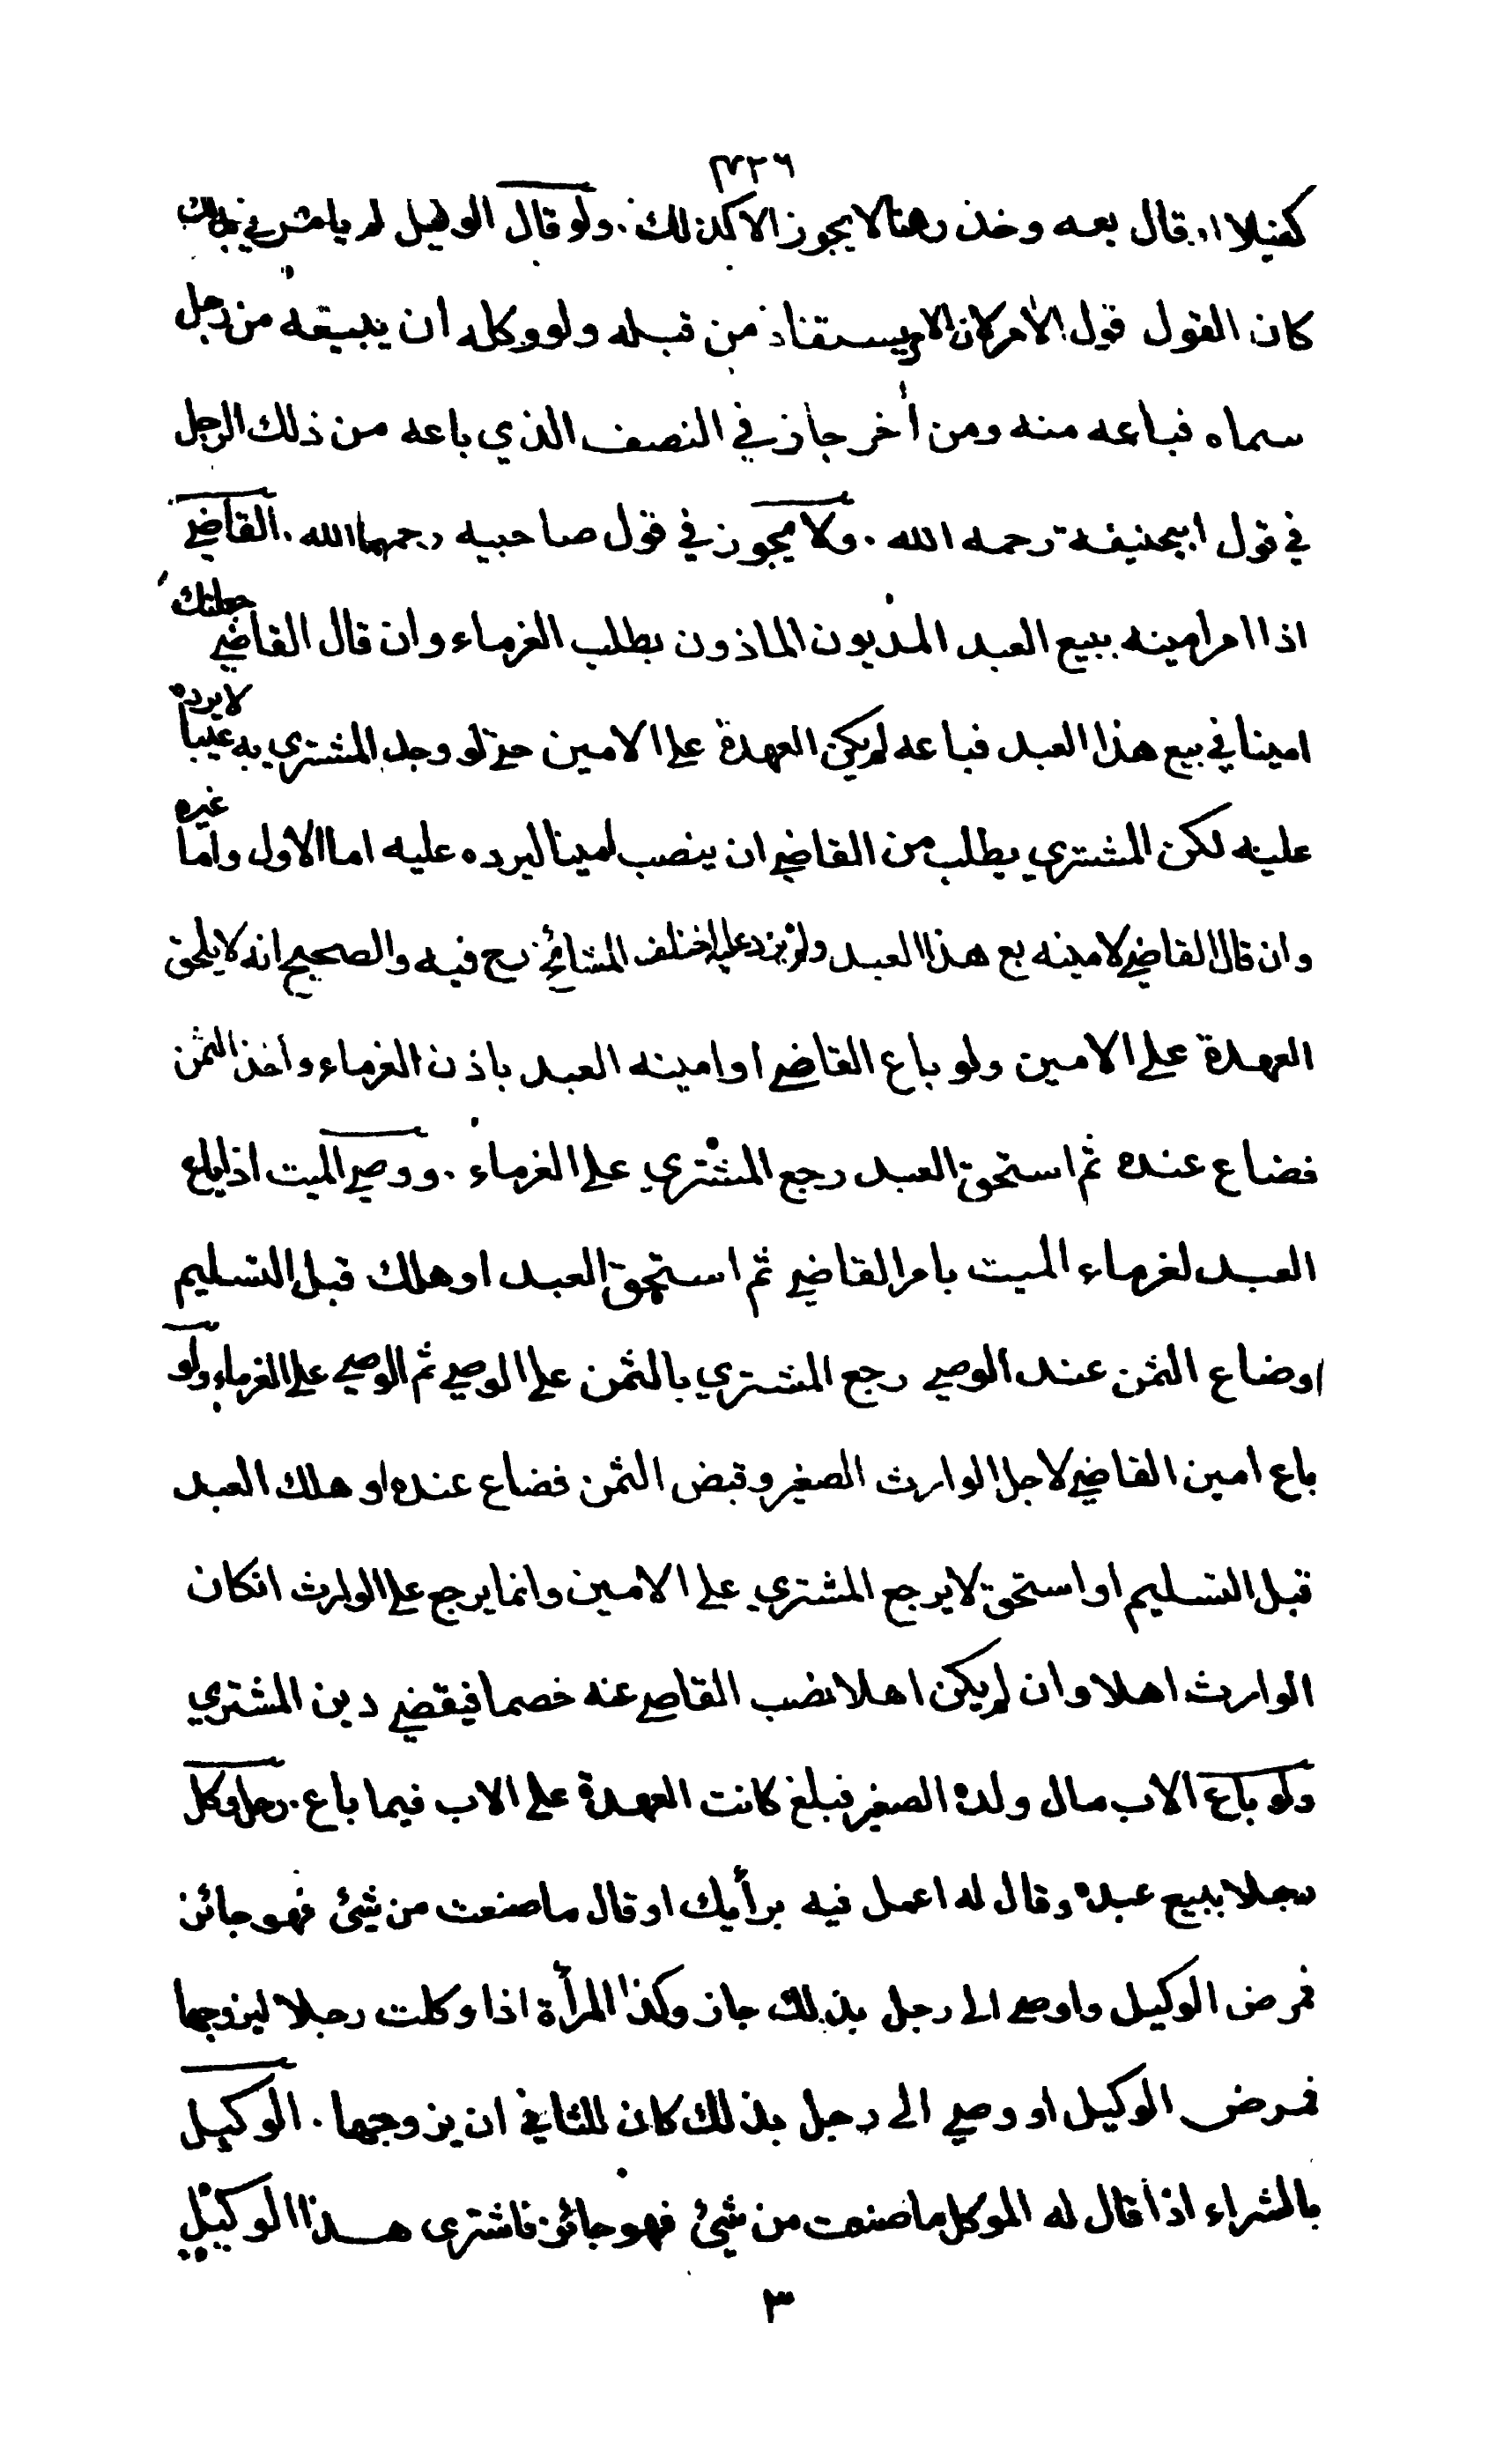 ٣٢٦
كفيلا او قال بعه وخذ رهنا لا يجوز الا كذلك . ولو قال الوكيل لم يامرني بذلك
كان القول قول الآمر لان الامر يستفاد من قبله ولو وكله ان يبيعه من رجل
سماه فباعه منه ومن أخر جاز في النصف الذي باعه من ذلك الرجل
في قول ابيحنيفة رحمه الله . ولا يجوز في قول صاحبيه رحمهما الله . القاضي
اذا امر امينه ببيع العبد المديون الماذون بطلب الغرماء وان قال القاضي جعلتك
امينا في بيع هذا العبد فباعه لم يكن العهدة على الامين حتى لو وجد المشتري به عيبا لا يرده
عليه لكن المشتري يطلب من القاضي ان ينصب امينا ليرده عليه اما الاول واما غيره
وان قال القاضي لامينه بع هذا العبد ولم يزد عليه اختلف المشائخ رح فيه والصحيح انه لا يلحق
العهدة على الامين ولو باع القاضي او امينه العبد باذن الغرماء واخذ الثمن
فضاع عنده ثم استحق العبد رجع المشتري على الغرماء . ووصي الميت اذا باع
العبد لغرماء الميت بامر القاضي ثم استحق العبد او هلك قبل التسليم
اوضاع الثمن عند الوصي رجع المشتري بالثمن على الوصي ثم الوصي على الغرماء ولو
باع امين القاضي لاجل الوارث الصغير وقبض الثمن فضاع عنده او هلك العبد
قبل التسليم او استحق لا يرجع المشتري على الامين وانما يرجع على الوارث انكان
الوارث اهلا وان لم يكن اهلا نصب القاضي عنه خصما فيقضي دين المشتري
ولو باع الاب مال ولده الصغير فبلغ كانت العهدة على الاب فيما باع . رجل وكل
رجلا ببيع عبده وقال له اعمل فيه برأيك او قال ما صنعت من شيئ فهو جائز
فمرض الوكيل واوصى الى رجل بذلك جاز وكذا المرأة اذا وكلت رجلا ليزوجها
فمرض الوكيل او وصي الى رجل بذلك كان للثاني ان يزوجها . الوكيل
بالشراء اذا قال له الموكل ما صنعت من شيئ فهو جائز فاشترى هذا الوكيل
٣